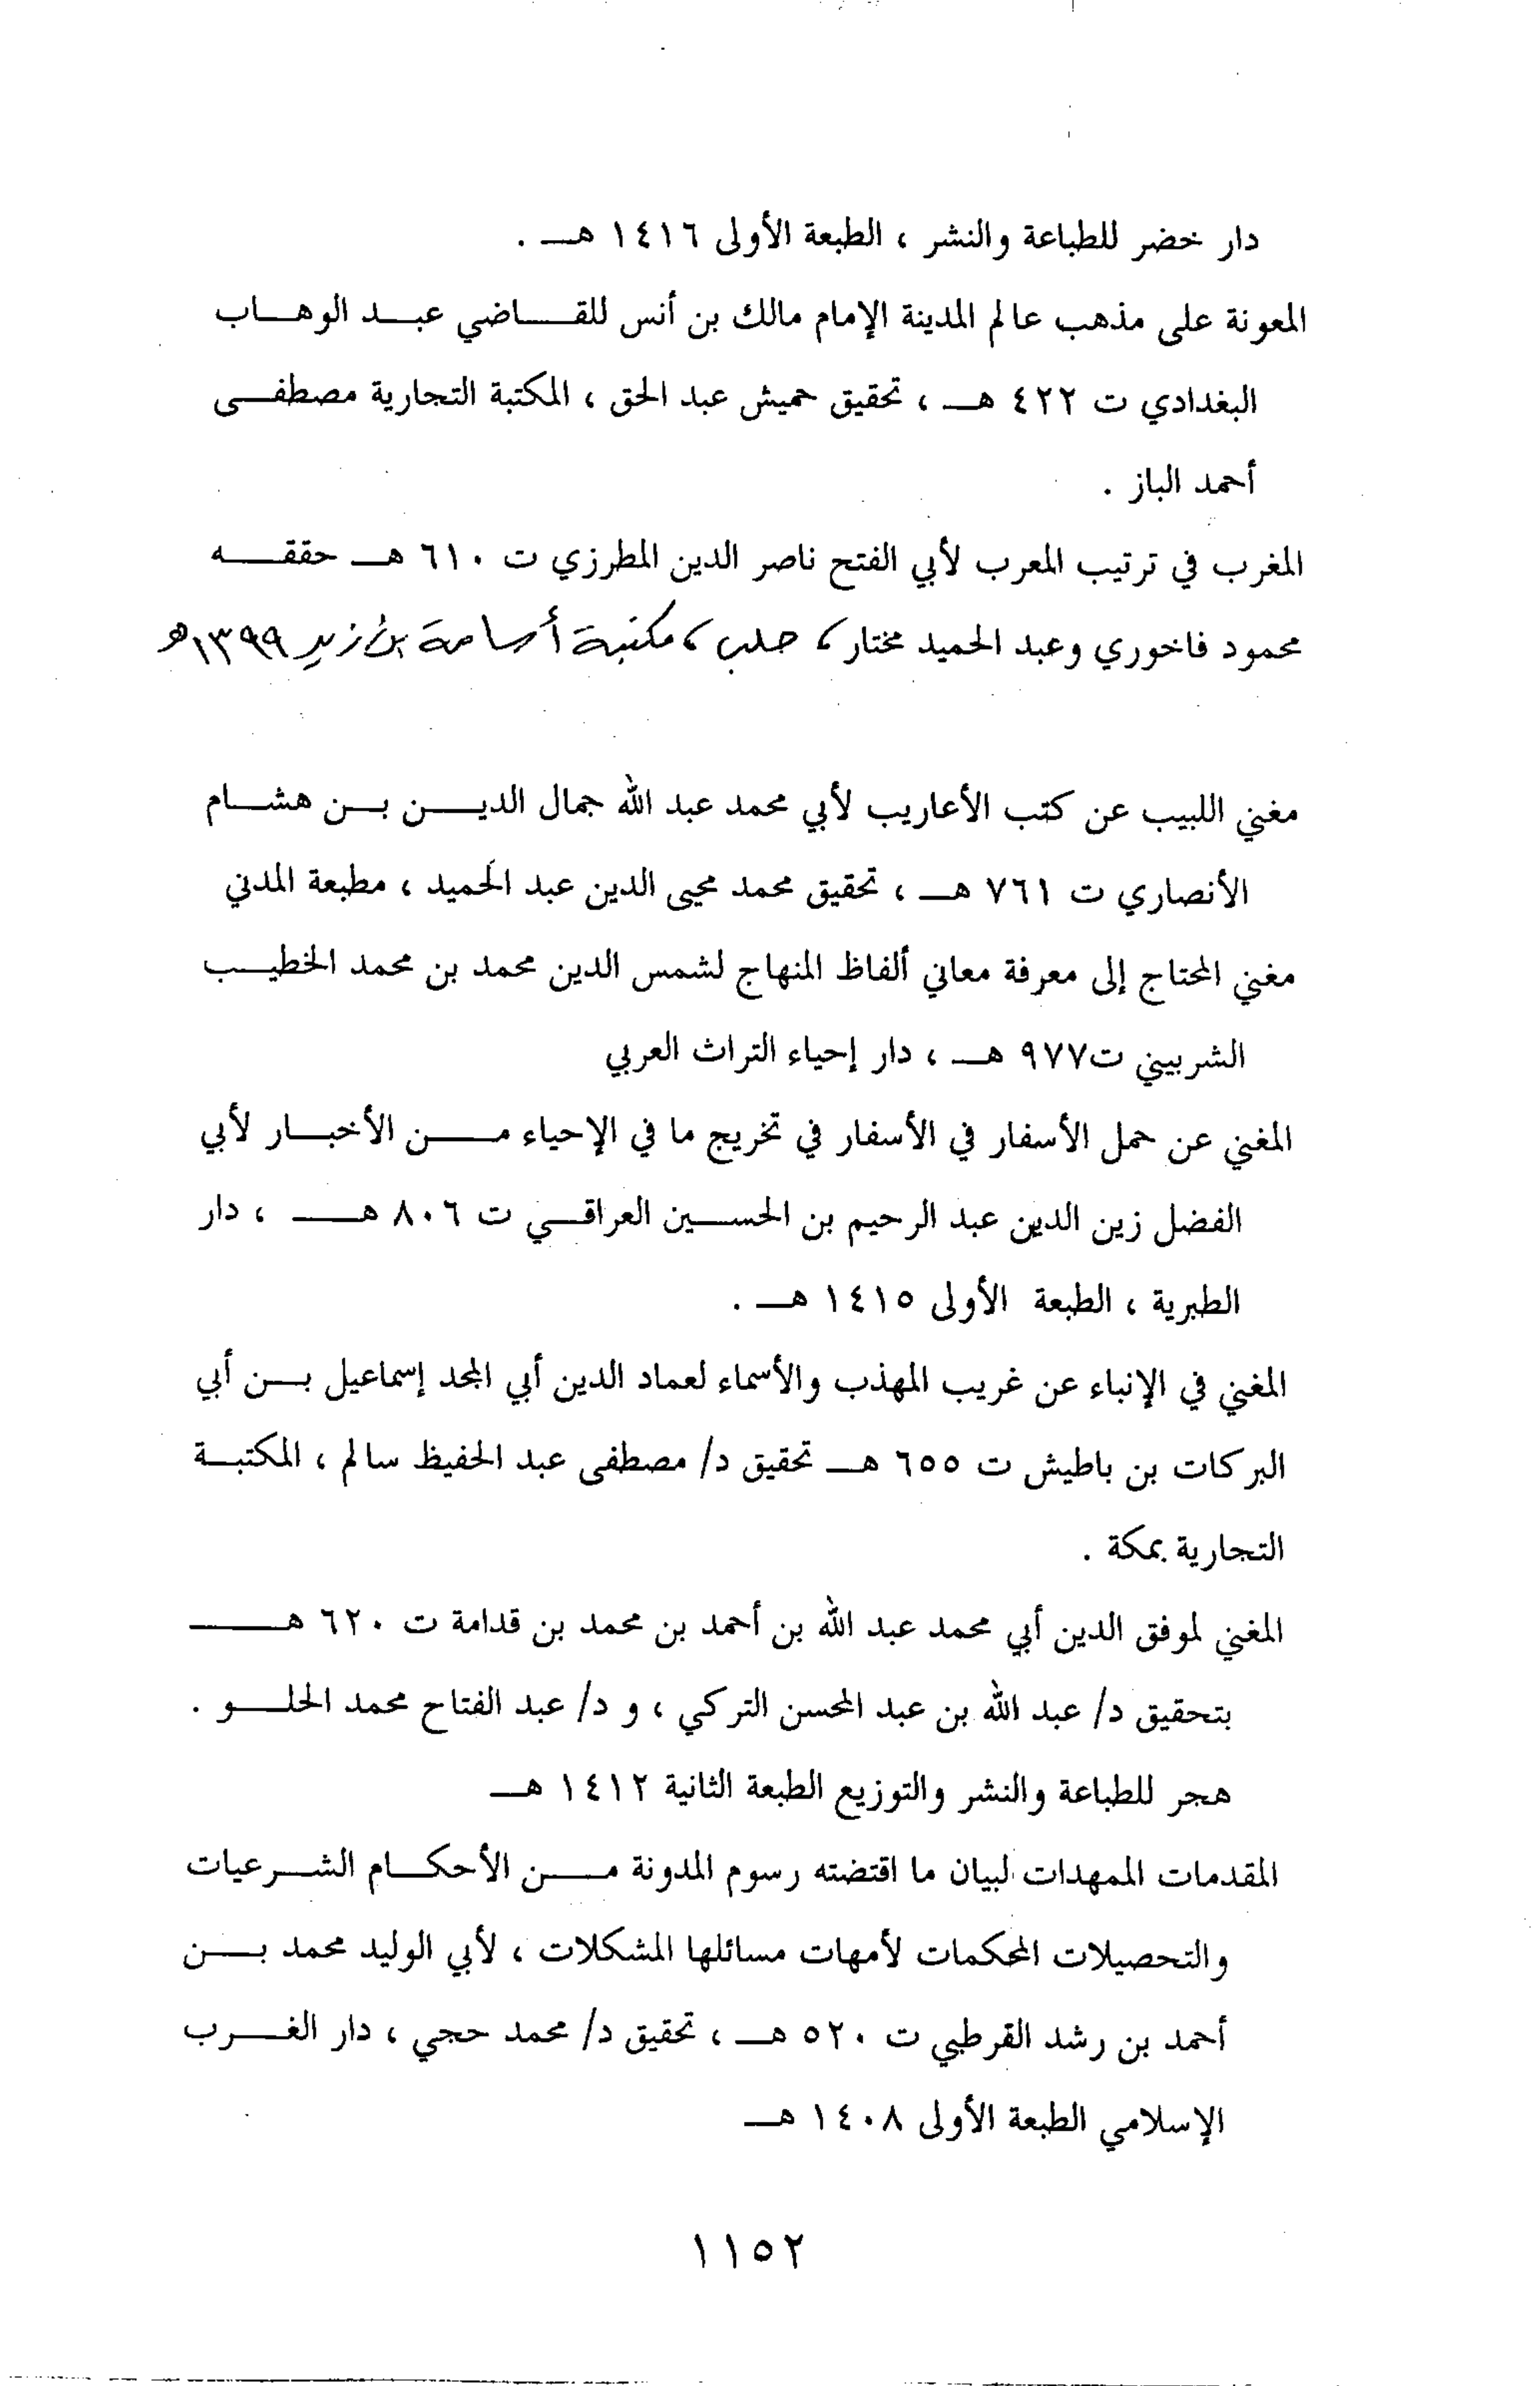 دار خضر للطباعة والنشر ، الطبعة الأولى ١٤١٦ هـ .
المعونة على مذهب عالم المدينة الإمام مالك بن أنس للقاضي عبد الوهاب
البغدادي ت ٤٢٢ هـ ، تحقيق حميش عبد الحق ، المكتبة التجارية مصطفى
أحمد الباز .
المغرب في ترتيب المعرب لأبي الفتح ناصر الدين المطرزي ت ٦١٠ هـ حققه
محمود فاخوري وعبد الحميد مختار ، حلب ، مكتبة أسامة بن زيد ١٣٩٩هـ
مغني اللبيب عن كتب الأعاريب لأبي محمد عبد الله جمال الدين بن هشام
الأنصاري ت ٧٦١ هـ ، تحقيق محمد محيى الدين عبد الحميد ، مطبعة المدني
مغني المحتاج إلى معرفة معاني ألفاظ المنهاج لشمس الدين محمد بن محمد الخطيب
الشربيني ت٩٧٧ هـ ، دار إحياء التراث العربي
المغني عن حمل الأسفار في الأسفار في تخريج ما في الإحياء من الأخبار لأبي
الفضل زين الدين عبد الرحيم بن الحسين العراقي ت ٨٠٦ هـ ، دار
الطبرية ، الطبعة الأولى ١٤١٥ هـ .
المغني في الإنباء عن غريب المهذب والأسماء لعماد الدين أبي المجد إسماعيل بن أبي
البركات بن باطيش ت ٦٥٥ هـ تحقيق د/ مصطفى عبد الحفيظ سالم ، المكتبة
التجارية بمكة .
المغني لموفق الدين أبي محمد عبد الله بن أحمد بن محمد بن قدامة ت ٦٢٠ هـ
بتحقيق د/ عبد الله بن عبد المحسن التركي ، و د/ عبد الفتاح محمد الحلو .
هجر للطباعة والنشر والتوزيع الطبعة الثانية ١٤١٢ هـ
المقدمات الممهدات لبيان ما اقتضته رسوم المدونة من الأحكام الشرعيات
والتحصيلات المحكمات لأمهات مسائلها المشكلات ، لأبي الوليد محمد بن
أحمد بن رشد القرطبي ت ٥٢٠ هـ ، تحقيق د/ محمد حجي ، دار الغرب
الإسلامي الطبعة الأولى ١٤٠٨ هـ
١١٥٢